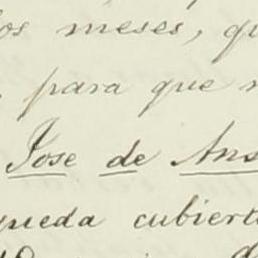 los meses, qu
para que
Jose de Ans
queda cubiert